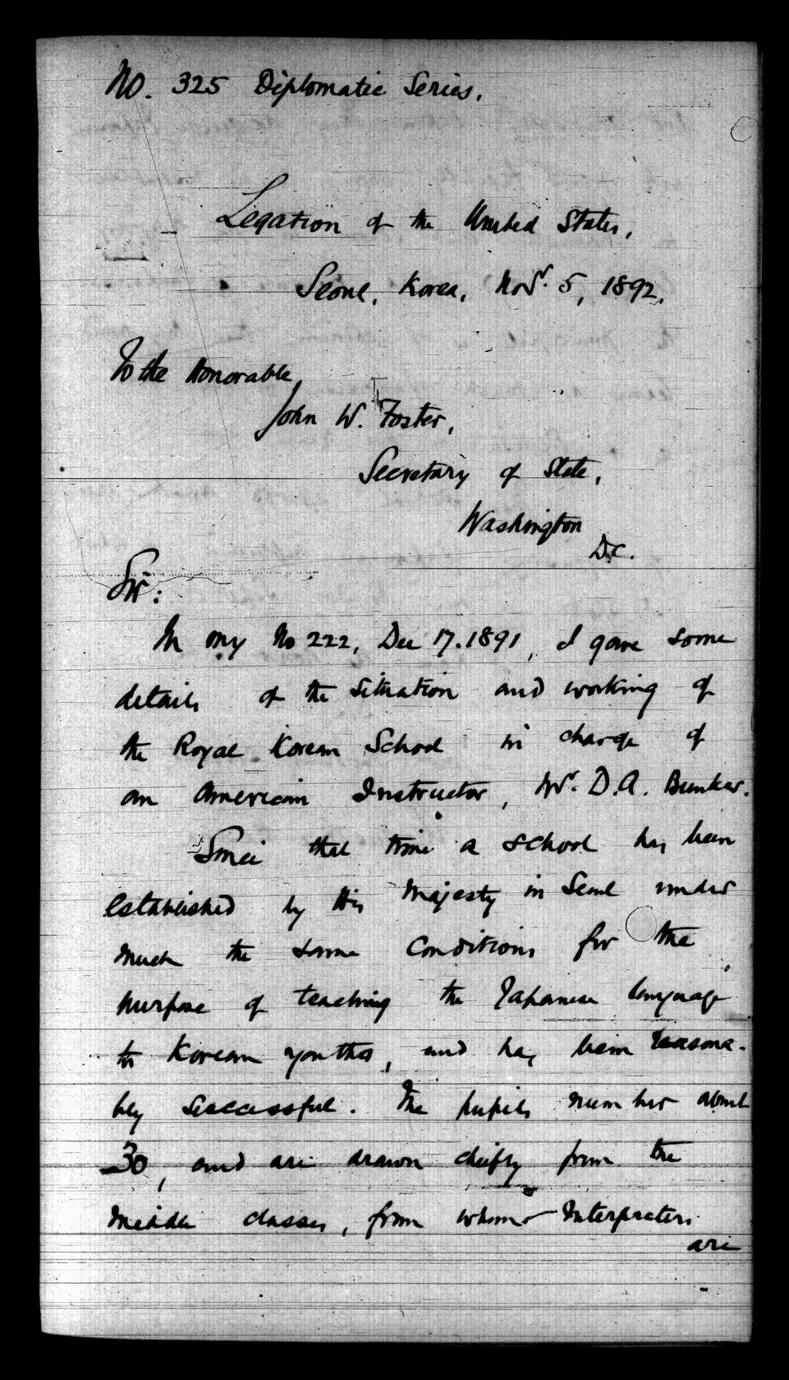 No. 325 Diplomatic Series.
Legation of the United States,
Seoul, Korea, Nov. 5, 1892.
To the Honorable
John W. Foster,
Secretary of State,
Washington
D.C.
Sir:
In my No 222, Dec 17. 1891, I gave some
details of the situation and working of
the Royal Korean School in charge of
an American Instructor, Mr. D.A. Bunker.
Since that time a school has been
established by His Majesty in Seoul under
much the same conditions for the
purpose of teaching the Japanese language
to Korean youths, and has been reasona-
bly successful. The pupils number about
30, and are drawn chiefly from the
middle classes, from whom Interpreters
are